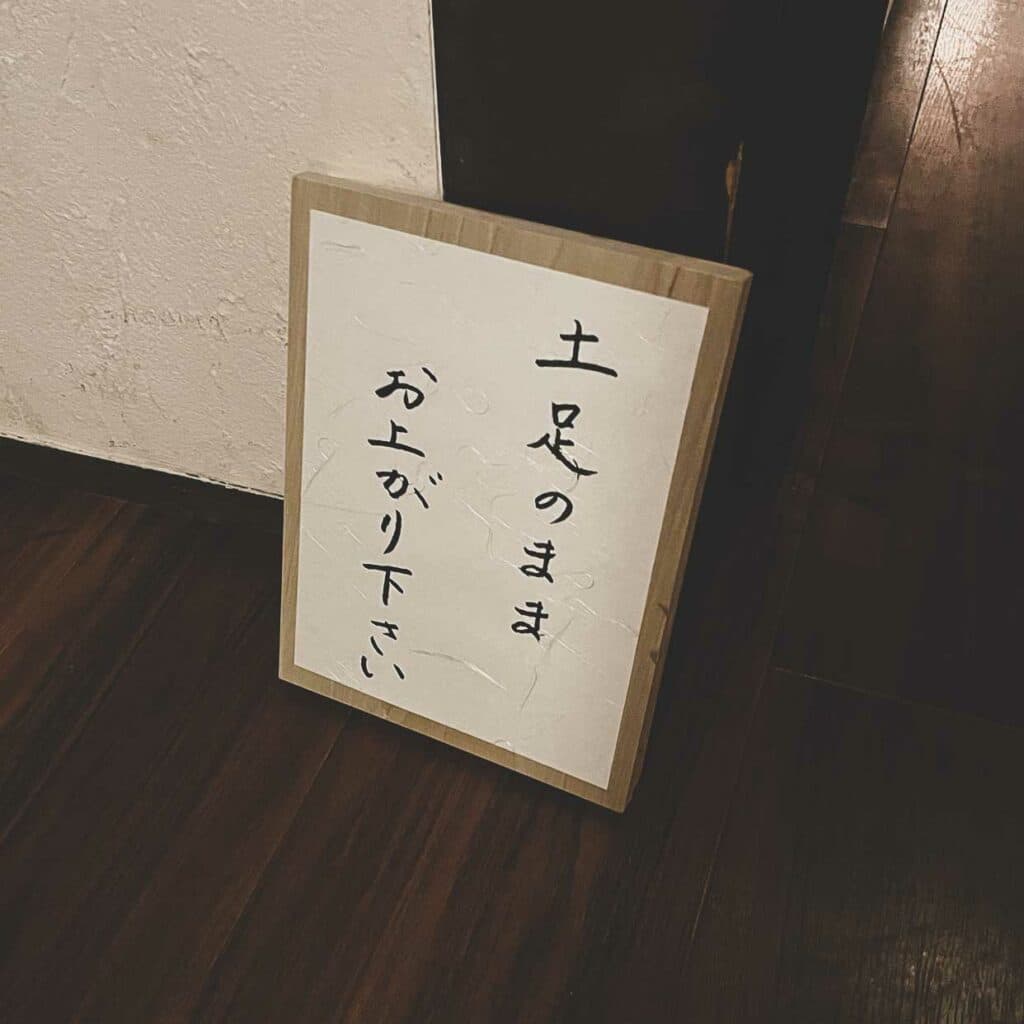 土足のまま
お上がり下さい